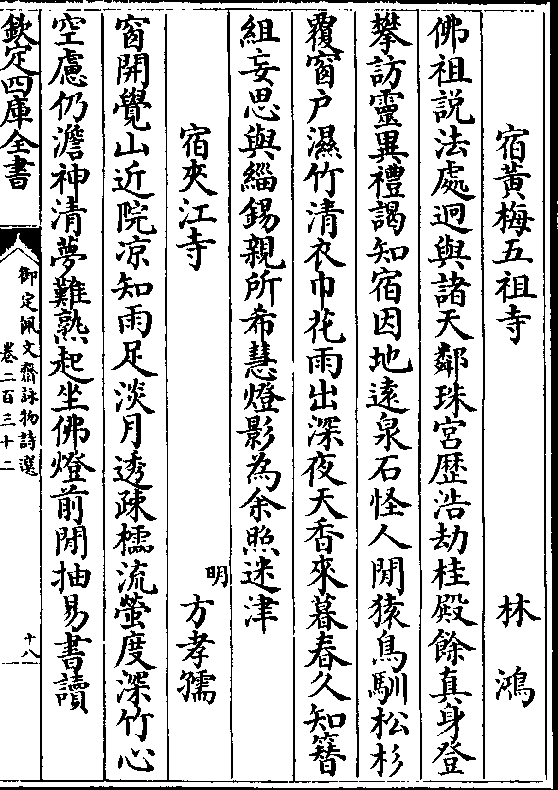 宿黃梅五祖寺　林鴻
佛祖說法處迥與諸天鄰珠宮歴浩劫桂殿餘真身登
攀訪靈異禮謁知宿因地遠泉石怪人閒猿鳥馴松杉
覆窗户濕竹清衣巾花雨出深夜天香來暮春久知簪
組妄思與緇錫親所希慧燈影為余照迷津
宿夾江寺　明方孝孺
窗開覺山近院凉知雨足淡月透疎櫺流螢度深竹心
空慮仍澹神清夢難熟起坐佛燈前閒抽易書讀
欽定四庫全書
御定佩文齋詠物詩選
卷二百三十二
十八